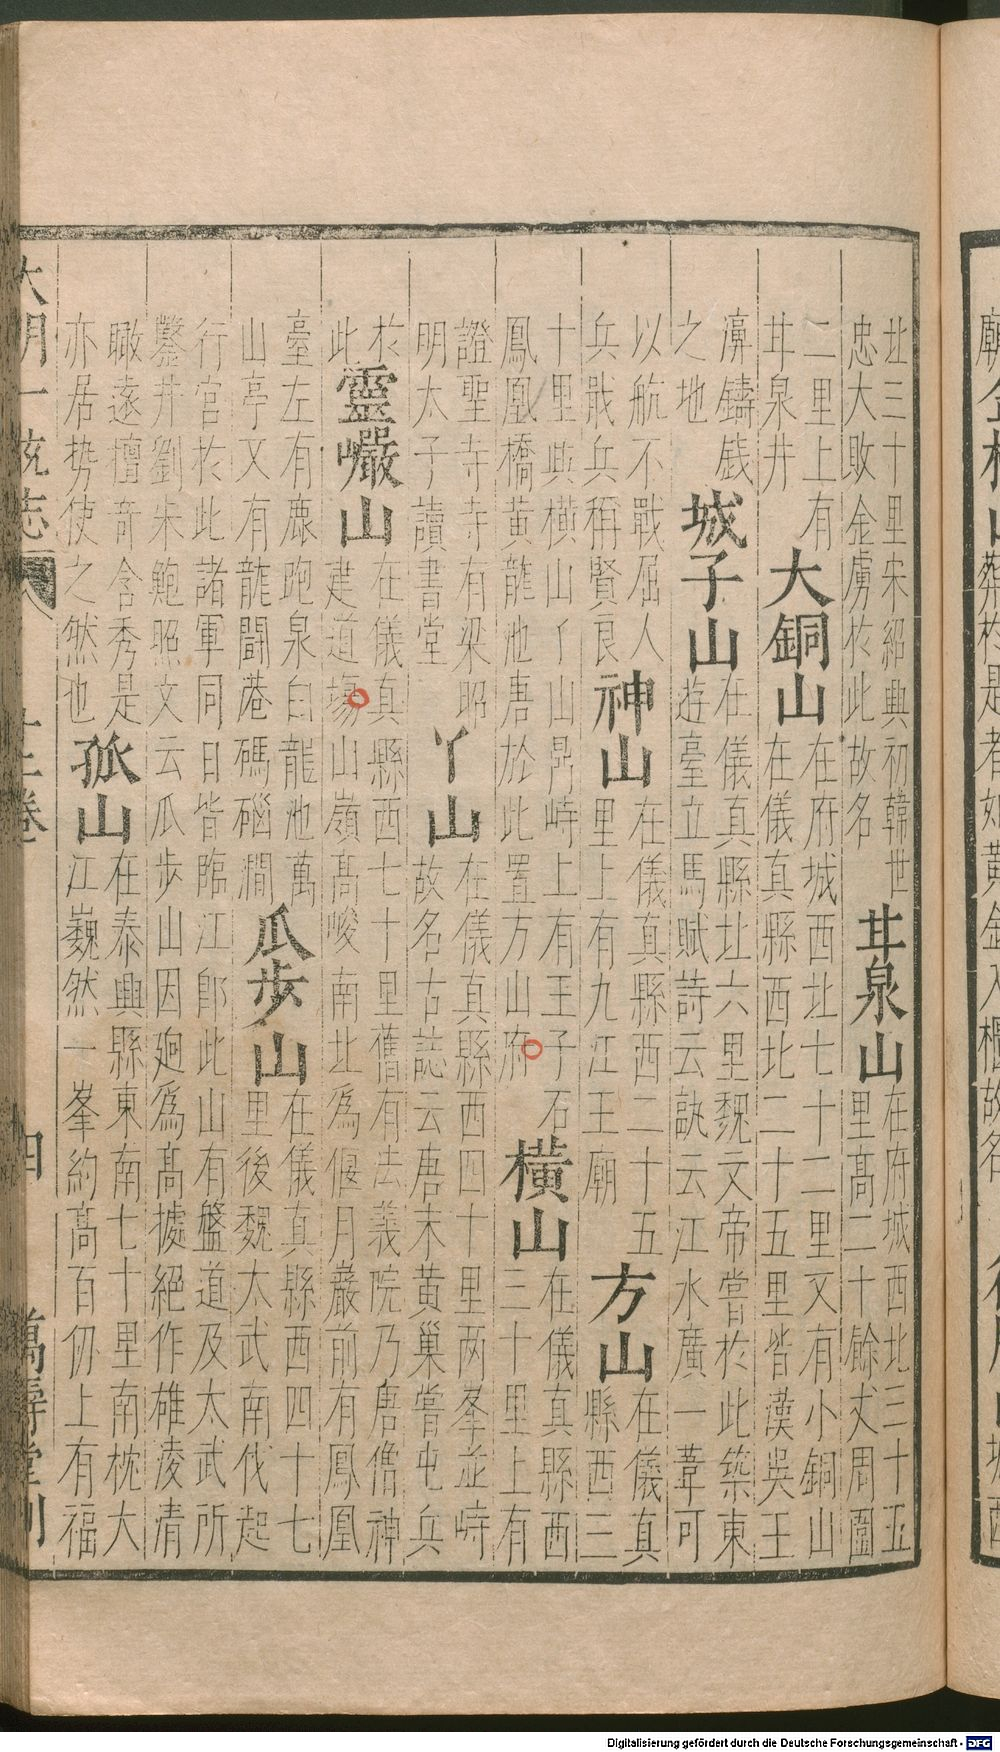 北三十里宋紹興初韓世
忠大敗金虜扵此故名
甘泉山
在府城西北三十五
里高二十餘丈周圍
二里上有
甘泉井
大銅山
在府城西北七十二里又有小銅山
在儀真縣西北二十五里皆漢吳王
濞鑄錢
之地
城子山
在儀真縣北六里魏文帝嘗扵此築東
遊臺立馬賦詩云誰云江水廣一葦可
以航不戰屈人
兵戢兵稱賢良
神山
在儀真縣西二十五
里上有九江王廟
方山
在儀真
縣西三
十里與橫山丫山鼎峙上有王子石
鳳凰橋黃龍池唐於此置方山府
橫山
在儀真縣西
三十里上有
證聖寺寺有梁昭
明太子讀書堂
丫山
在儀真縣西四十里两峯並峙
故名古誌云唐末黃巢嘗屯兵
扵
此
靈巖山
在儀真縣西七十里舊有法義院乃唐僧神
建道場山嶺高峻南北爲偃月巖前有鳳凰
臺左有鹿跑泉白龍池萬
山亭又有龍闘港碼碯澗
瓜步山
在儀真縣西四十七
里後魏太武南伐起
行宮扵此諸軍同日皆臨江即此山有盤道及太武所
鑿井劉宋鮑照文云瓜步山因迥爲高據絕作雄凌清
瞰遠擅竒含秀是
亦居勢使之然也
孤山
在泰興縣東南七十里南枕大
江巍然一峯約高百仞上有福
大明一統志
十二卷
四
萬壽堂刊
廟
金櫃山
葬扵是者如黃金入櫃故名
城西
Digitalisierung gefördert durch die Deutsche Forschungsgemeinschaft - DFG